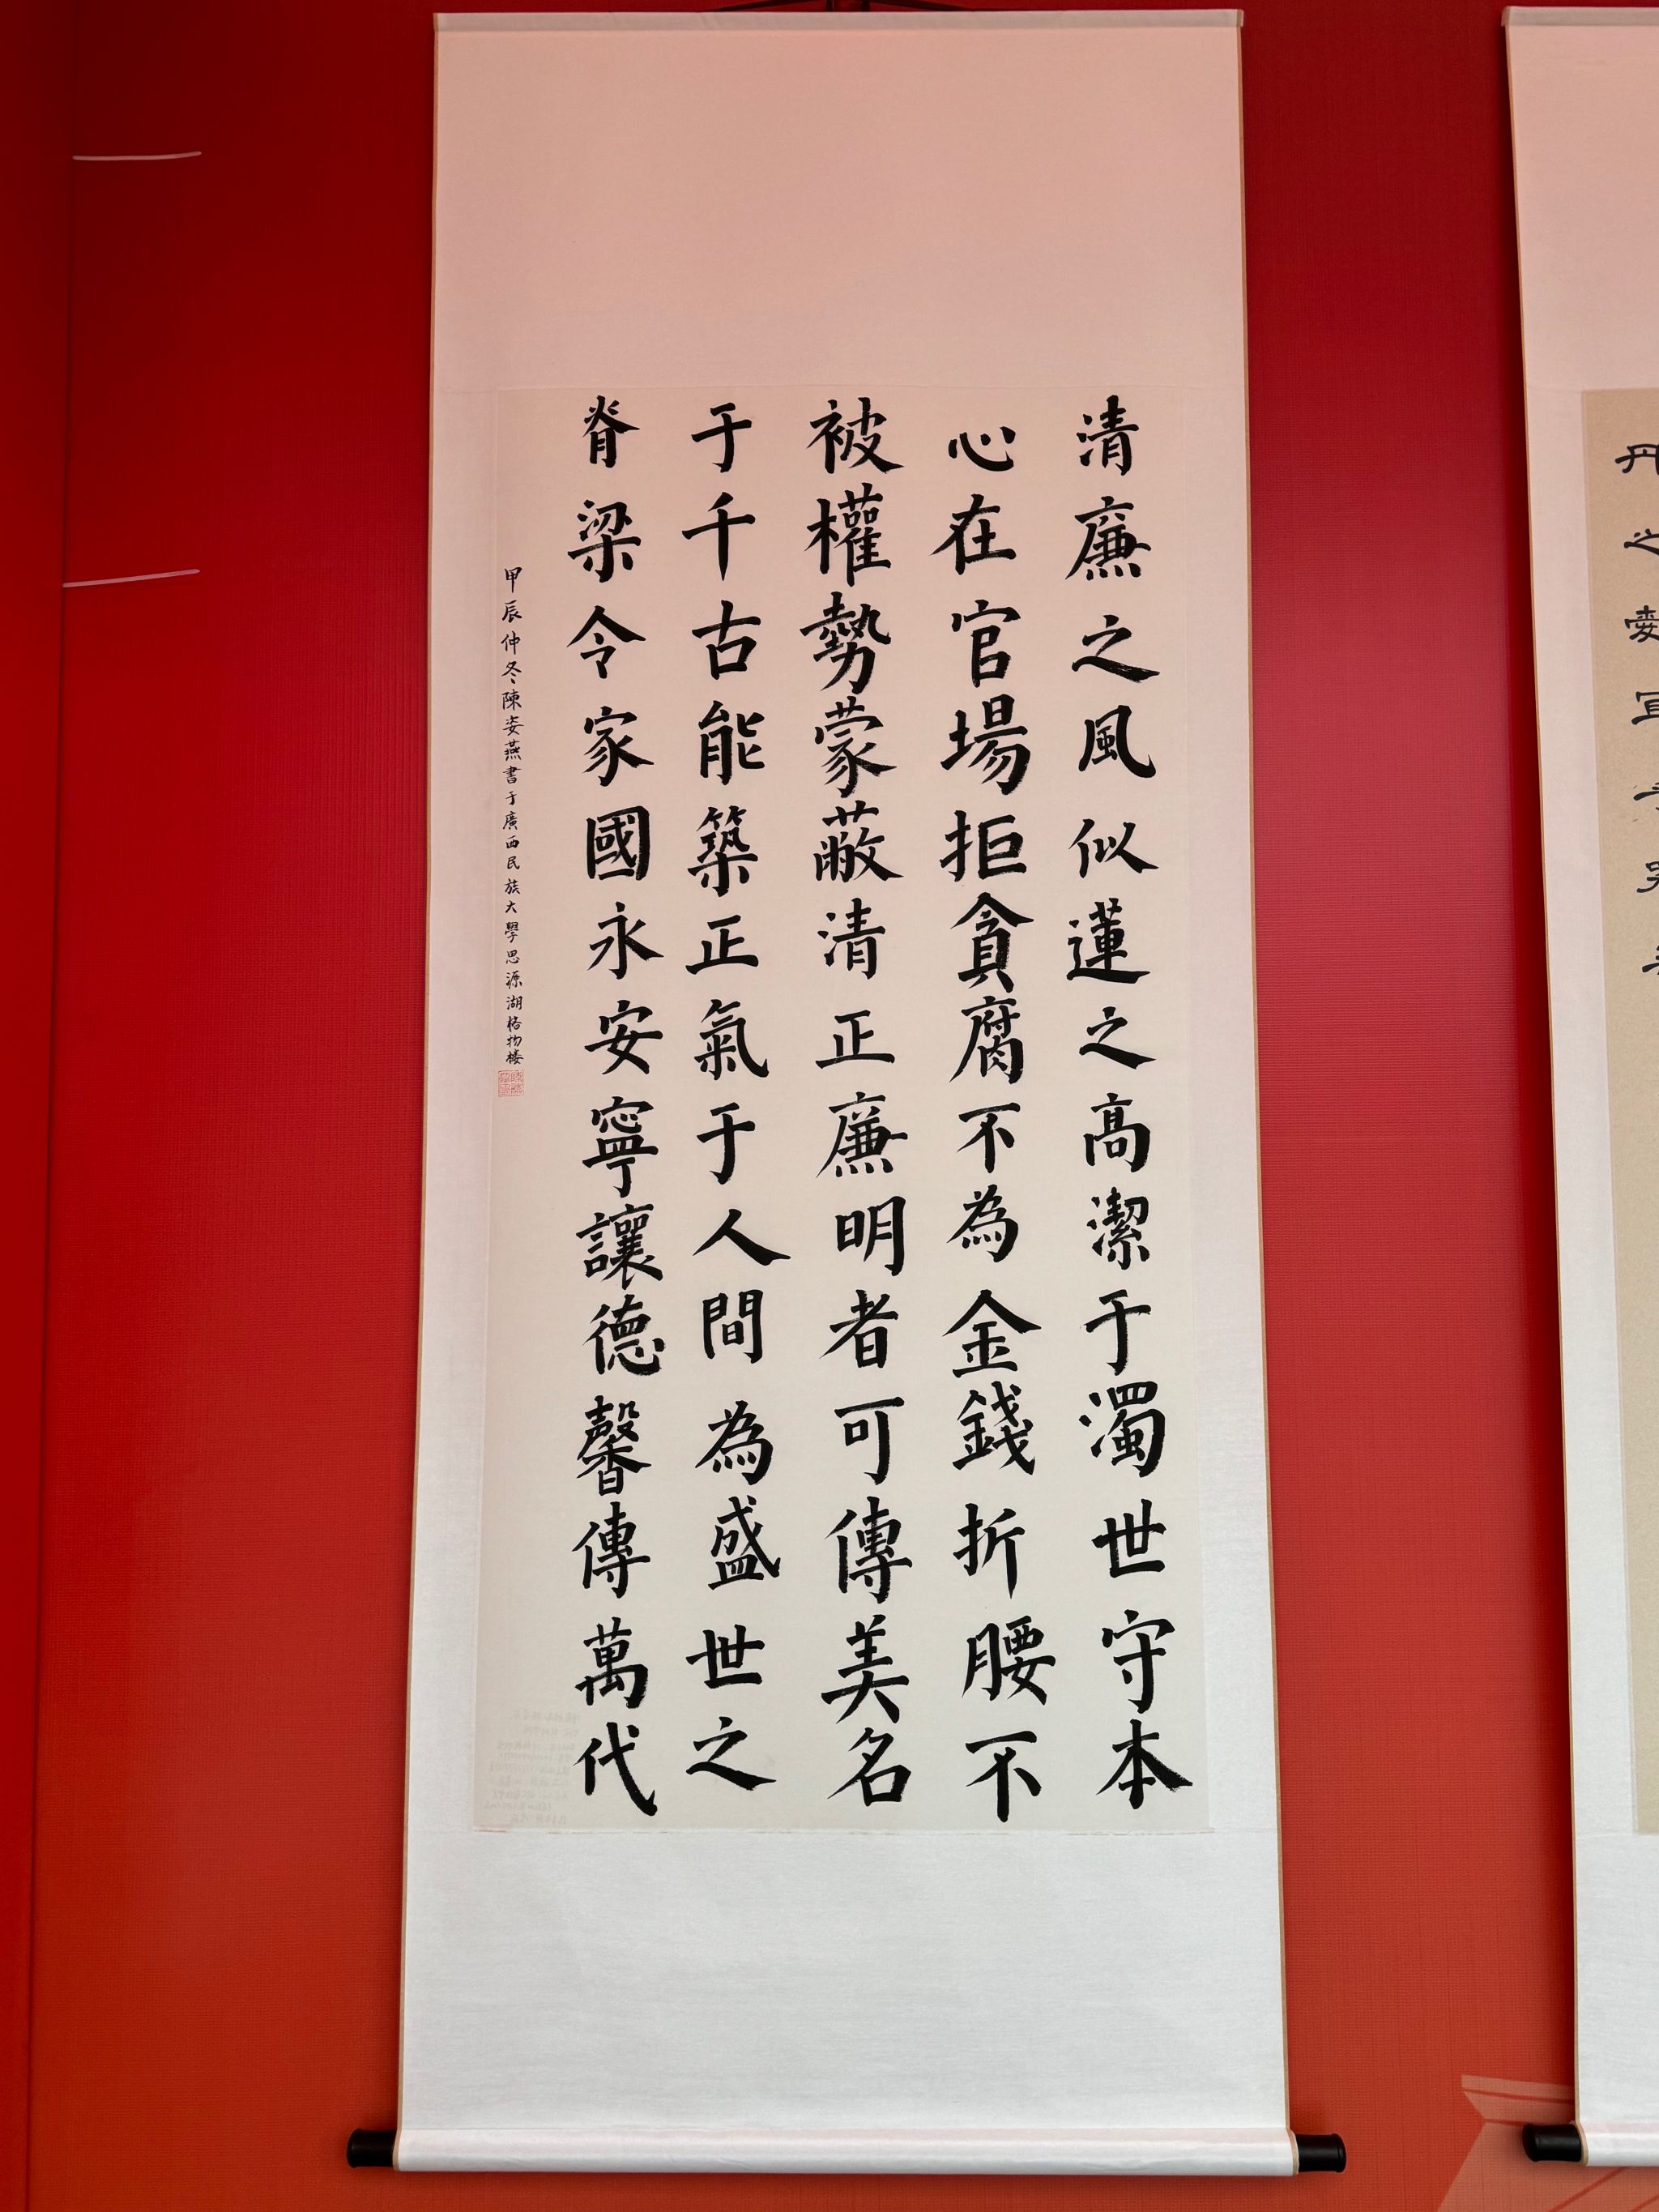 清廉之風似蓮之高潔于濁世守本
心在官場拒貪腐不為金錢折腰不
被權勢蒙蔽清正廉明者可傳美名
于千古能築正氣于人間為盛世之
脊梁令家國永安寧讓德馨傳萬代
甲辰仲冬陳姿燕書于廣西民族大學思源湖格物楼
丹
之